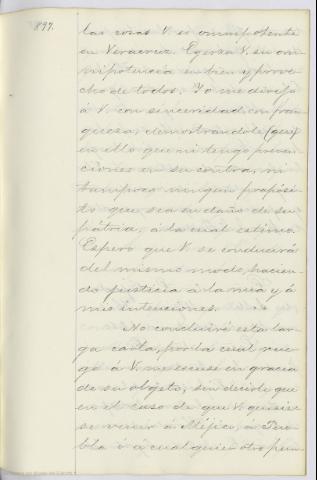 897.
las cosas V. es omnipotente
en Veracruz. Egerza V. su om-
nipotencia en bien y prove-
cho de todos. Yo me dirijo
á V. con sinceridad, con fran-
queza, demostrándole (que)
en ello que ni tengo preven-
ciones en su contra, ni
tampoco ningun propósi-
to que sea en daño de su
pátria, á la cual estimo.
Espero que V. se conducirá
del mismo modo, hacien-
do justicia á la mia y á
mis intenciones.
No concluiré esta lar-
ga carta, por la cual rue-
go á V. me escuse en gracia
de su objeto, sin decirle que
en el caso de que V. quisie-
se venir á Méjico, á Pue-
bla ó á cualquier otro pun-